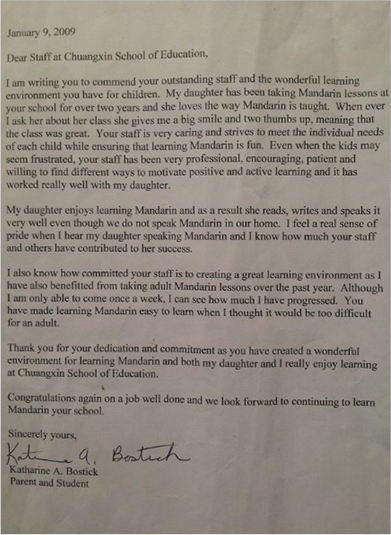 January 9, 2009
Dear Staff at Chuangxin School of Education,
I am writing you to commend your outstanding staff and the wonderful learning
environment you have for children. My daughter has been taking Mandarin lessons at
your school for over two years and she loves the way Mandarin is taught. When ever
I ask her about her class she gives me a big smile and two thumbs up, meaning that
the class was great. Your staff is very caring and strives to meet the individual needs
of each child while ensuring that learning Mandarin is fun. Even when the kids may
seem frustrated, your staff has been very professional, encouraging, patient and
willing to find different ways to motivate positive and active learning and it has
worked really well with my daughter.
My daughter enjoys learning Mandarin and as a result she reads, writes and speaks it
very well even though we do not speak Mandarin in our home. I feel a real sense of
pride when I hear my daughter speaking Mandarin and I know how much your staff
and others have contributed to her success.
I also know how committed your staff is to creating a great learning environment as I
have also benefitted from taking adult Mandarin lessons over the past year. Although
I am only able to come once a week, I can see how much I have progressed. You
have made learning Mandarin easy to learn when I thought it would be too difficult
for an adult.
Thank you for your dedication and commitment as you have created a wonderful
environment for learning Mandarin and both my daughter and I really enjoy learning
at Chuangxin School of Education.
Congratulations again on a job well done and we look forward to continuing to learn
Mandarin your school.
Sincerely yours,
A. Bostick
Katharine A. Bostick
Parent and Student